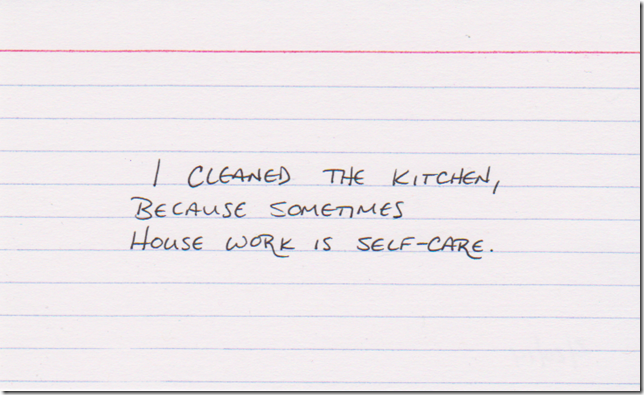 I CLEANED THE KITCHEN,
BECAUSE SOMETIMES
HOUSE WORK IS SELF-CARE.